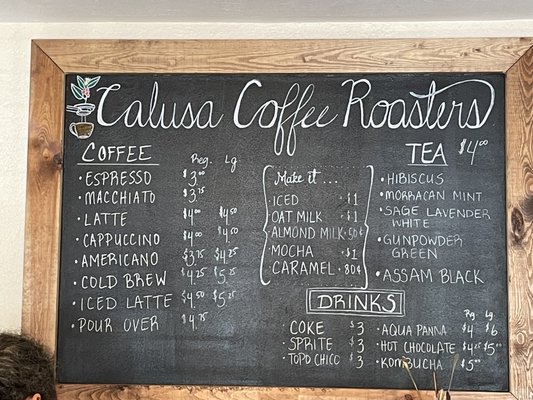 Calusa Coffee Roasters
COFFEE
Reg. Lg
• ESPRESSO $3.00
• MACCHIATO $3.75
• LATTE $4.00 $4.50
• CAPPUCCINO $4.00 $4.50
• AMERICANO $3.75 $4.25
• COLD BREW $4.25 $5.25
• ICED LATTE $4.50 $5.25
• POUR OVER $4.75
Make it ...
• ICED • $1
• OAT MILK • $1
• ALMOND MILK • 50¢
• MOCHA • $1
• CARAMEL • 80¢
TEA $4.00
• HIBISCUS
• MORRACAN MINT
• SAGE LAVENDER
WHITE
• GUNPOWDER
GREEN
• ASSAM BLACK
DRINKS
• COKE $3
• SPRITE $3
• TOPO CHICO $3
Rg. Lg.
• AQUA PANNA $4 $6
• HOT CHOCOLATE $4.25 $5.00
• KOMBUCHA $5.00